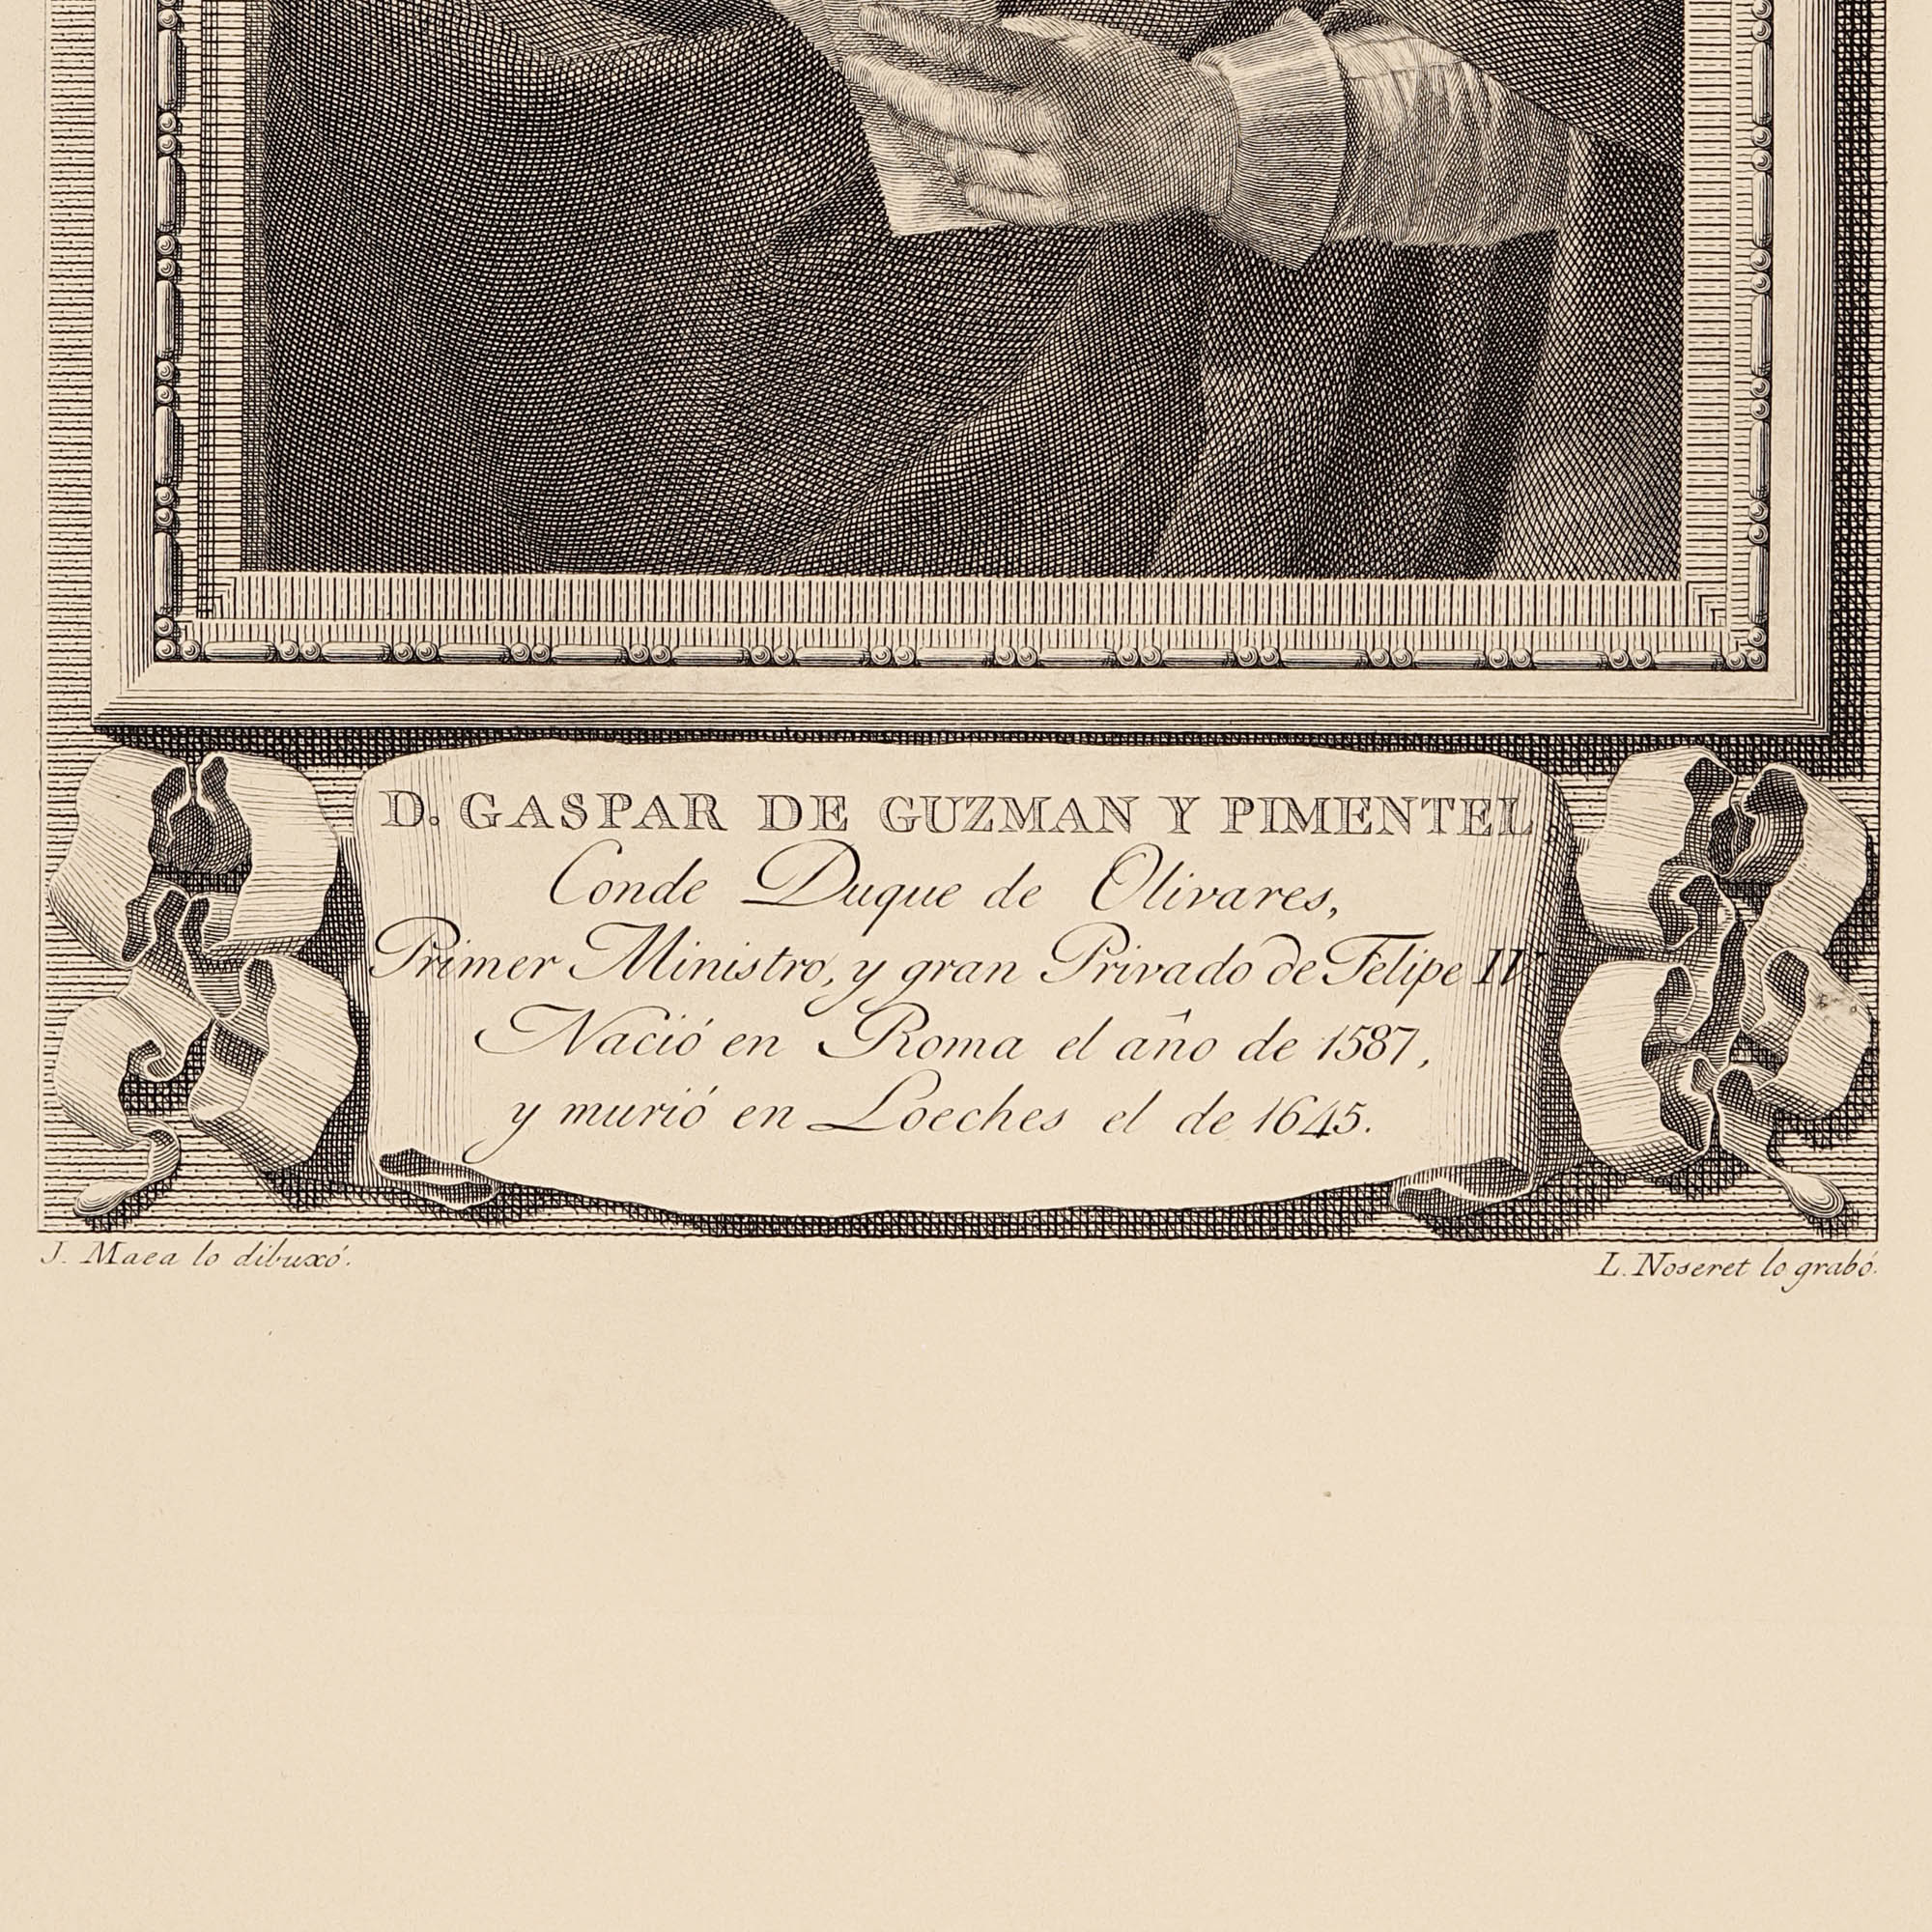 D. GASPAR DE GUZMAN Y PIMENTEL
Conde Duque de Olivares,
Primer Ministro, y gran Privado de Felipe IV.
Nació en Roma el año de 1587,
y murió en Loeches el de 1645.
J. Maea lo dibuxó.
L. Noseret lo grabó.